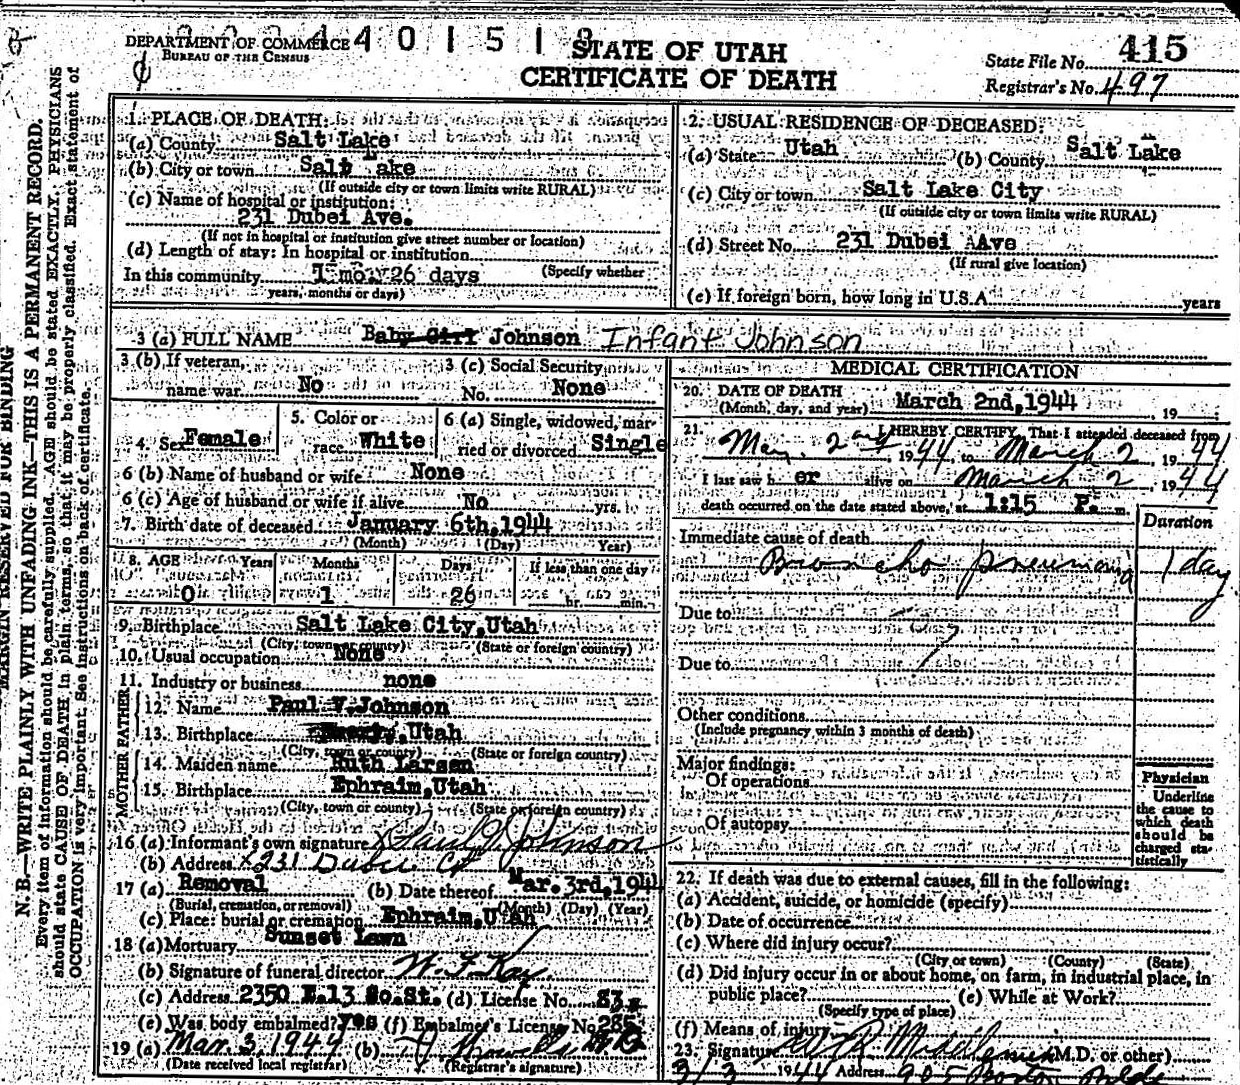 DEPARTMENT OF COMMERCE
BUREAU OF THE CENSUS
STATE OF UTAH
CERTIFICATE OF DEATH
State File No. 415
Registrar's No. 497
MARGIN RESERVED FOR BINDING
N. B.—WRITE PLAINLY WITH UNFADING INK—THIS IS A PERMANENT RECORD.
Every item of information should be carefully supplied. AGE should be stated EXACTLY. PHYSICIANS
should state CAUSE OF DEATH in plain terms, so that it may be properly classified. Exact statement of
OCCUPATION is very important. See instructions on back of certificate.
1. PLACE OF DEATH:
(a) County Salt Lake
(b) City or town Salt Lake
(If outside city or town limits write RURAL)
(c) Name of hospital or institution:
231 Dubei Ave.
(If not in hospital or institution give street number or location)
(d) Length of stay: In hospital or institution
(Specify whether
In this community 1 mo. 26 days
years, months or days)
2. USUAL RESIDENCE OF DECEASED:
(a) State Utah (b) County Salt Lake
(c) City or town Salt Lake City
(If outside city or town limits write RURAL)
(d) Street No. 231 Dubei AAve
(If rural give location)
(e) If foreign born, how long in U.S.A. years
3 (a) FULL NAME Baby Girl Johnson Infant Johnson
3 (b) If veteran, name war No
3 (c) Social Security No. None
4. Sex Female
5. Color or race White
6 (a) Single, widowed, married or divorced Single
6 (b) Name of husband or wife None
6 (c) Age of husband or wife if alive No yrs.
7. Birth date of deceased January 6th, 1944
(Month) (Day) Year)
8. AGE Years Months Days If less than one day
0 1 26 hr. min.
9. Birthplace Salt Lake City, Utah
(City, town or county) (State or foreign country)
10. Usual occupation None
11. Industry or business none
FATHER
12. Name Paul V. Johnson
13. Birthplace , Utah
(City, town or county) (State or foreign country)
MOTHER
14. Maiden name Ruth Larsen
15. Birthplace Ephraim, Utah
(City, town or county) (State or foreign country)
16 (a) Informant's own signature x Paul V. Johnson
(b) Address x 231
17 (a) Removal (b) Date thereof Mar. 3rd, 1944
(Burial, cremation, or removal) (Month) (Day) (Year)
(c) Place: burial or cremation Ephraim, Utah
18 (a) Mortuary Sunset Lawn
(b) Signature of funeral director
(c) Address 2350 E. 13 So. St. (d) License No. 83
(e) Was body embalmed? yes (f) Embalmer's License No. 285
19 (a) Mar. 3, 1944 (b)
(Date received local registrar) (Registrar's signature)
MEDICAL CERTIFICATION
20. DATE OF DEATH
(Month, day, and year) March 2nd, 1944, 19
21. I HEREBY CERTIFY, That I attended deceased from
Mar. 2nd 1944, to March 2, 1944
I last saw her alive on March 2, 1944
death occurred on the date stated above, at 1:15 P. m.
Duration
Immediate cause of death
Broncho pneumonia 1 day
Due to
Due to
Other conditions
(Include pregnancy within 3 months of death)
Major findings:
Of operations
Of autopsy
Physician
Underline
the cause to
which death
should be
charged sta-
tistically
22. If death was due to external causes, fill in the following:
(a) Accident, suicide, or homicide (specify)
(b) Date of occurrence
(c) Where did injury occur?
(City or town) (County) (State)
(d) Did injury occur in or about home, on farm, in industrial place, in
public place? (e) While at Work?
(Specify type of place)
(f) Means of injury
23. Signature (M.D. or other)
3/3 1944 Address 905 Boston Bldg